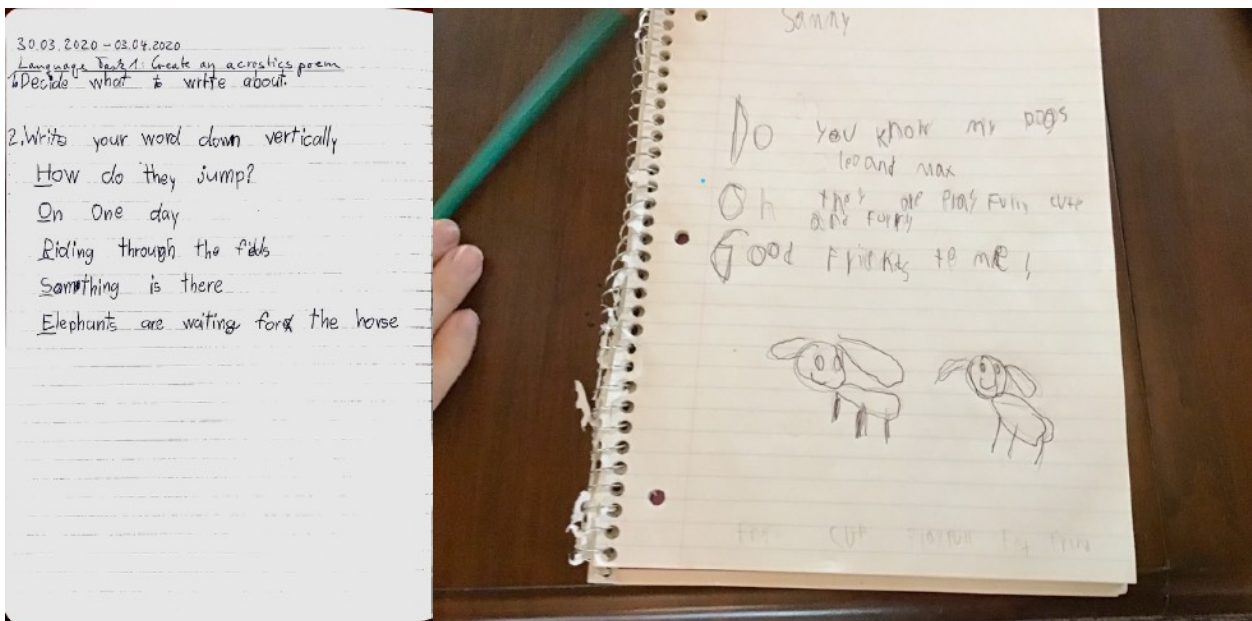 30.03.2020 – 03.04.2020
Language Task 1: Create an acrostics poem
1. Decide what to write about.
2. Write your word down vertically
How do they jump?
On One day
Riding through the fields
Something is there
Elephants are waiting for the horse
Sammy
Do you know my DOGS
leo and max
Oh they are cute
and furry
Good Friends to me!
CUT